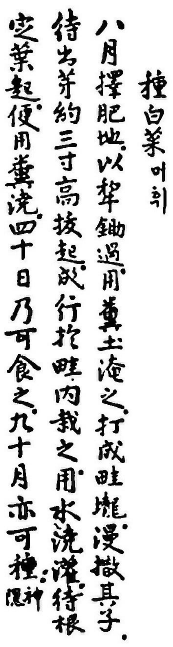 種白菜
八月擇肥地。以犂鋤過。用糞土淹之。打成畦壠。漫撒其子。
待出芽約三寸高拔起。成行於畦內栽之。用水澆灌。待根
定葉起。便用糞澆。四十日乃可食之。九十月亦可種。神隠